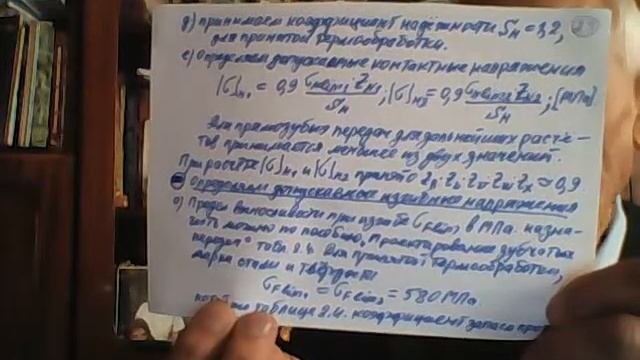 д) принимаем коэффициент надёжности S_H = 1,2,
для принятой термообработки.
е) Определяем допускаемые контактные напряжения
|σ|_H1 = 0,9 σ_Hlim1 · Z_N1 / S_H ; |σ|_H2 = 0,9 σ_Hlim2 · Z_N2 / S_H ; [МПа]
Для прямозубых передач для дальнейших расчё-
тов принимается меньшее из двух значений.
При расчёте |σ|_H1 и |σ|_H2 принято = 0,9.
Определяем допускаемые изгибные напряжения
а) Предел выносливости при изгибе σ_Flim в МПа назна-
чить можно по пособию „Проектирование зубчатых
передач" табл 2.4. Для принятой термообработки,
марки стали и твёрдости
σ_Flim1 = σ_Flim2 = 580 МПа
таблице 2.4. коэффициент запаса